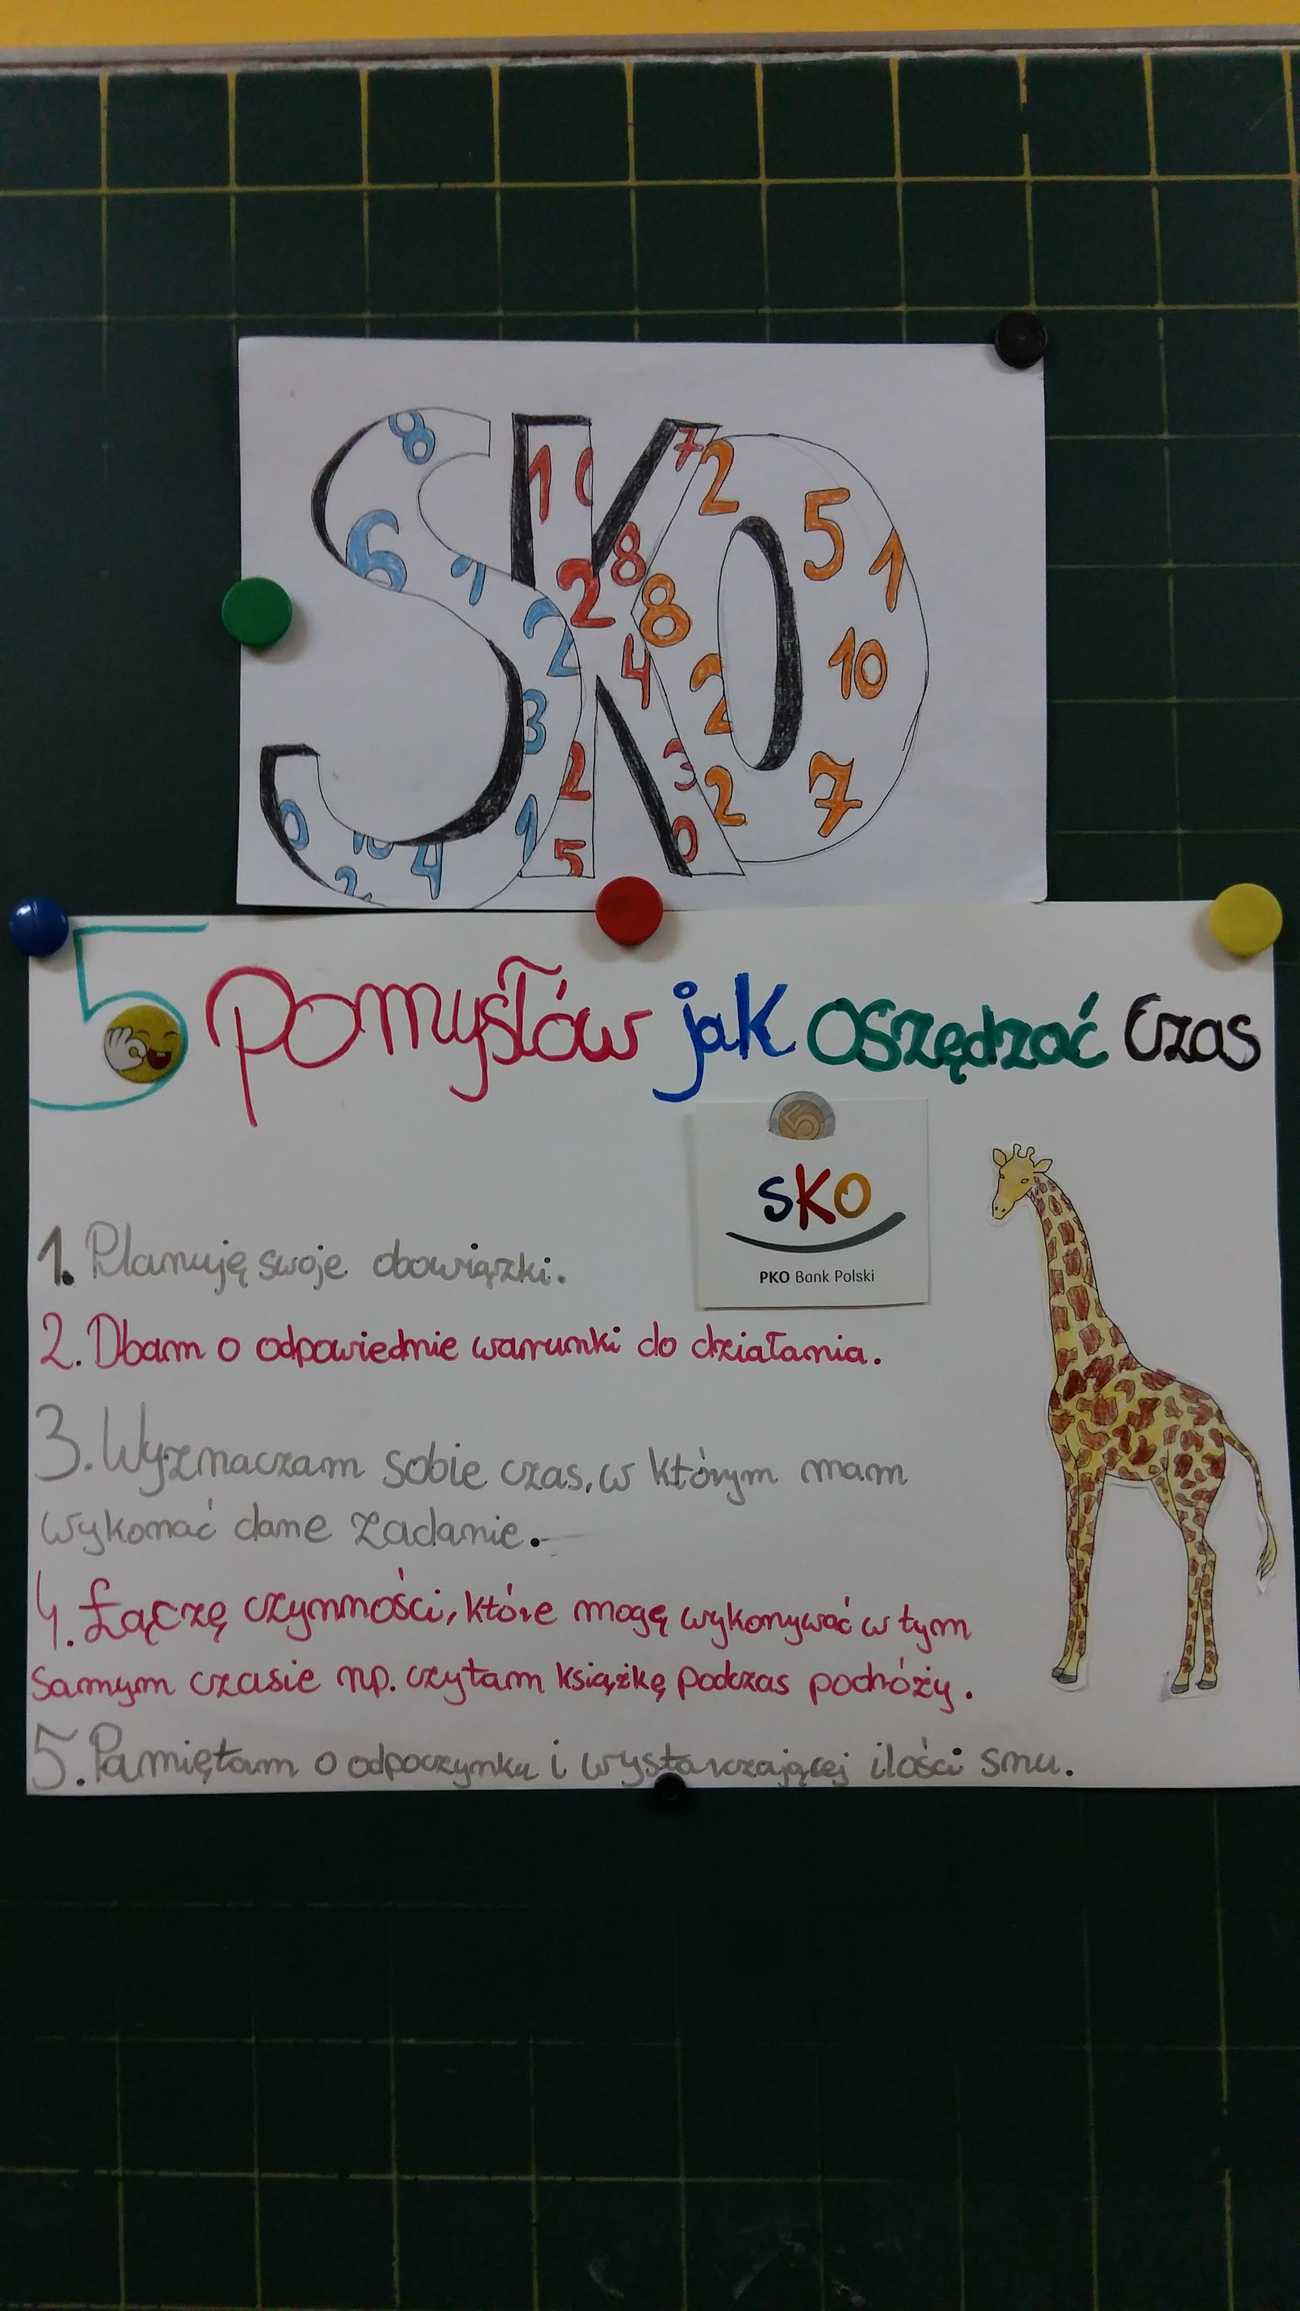 SKO
5 Pomysłów jak oszędzać czas
sKO
PKO Bank Polski
1. Planuję swoje obowiązki.
2. Dbam o odpowiednie warunki do działania.
3. Wyznaczam sobie czas, w którym mam
wykonać dane zadanie.
4. Łączę czynności, które mogę wykonywać w tym
samym czasie np. czytam książkę podczas podróży.
5. Pamiętam o odpoczynku i wystarczającej ilości snu.